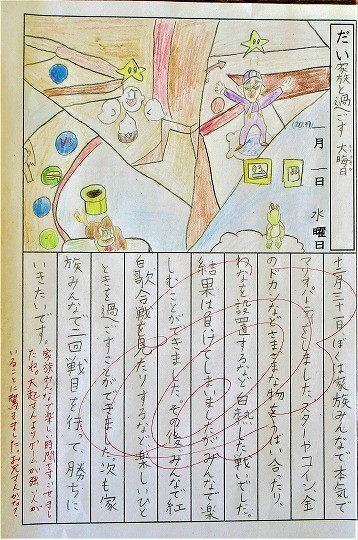 だい 家族と過ごす 大晦日
一月一日 水曜日
(20:39)
十二月三十一日ぼくは家族みんなで本気で
マリオパーティをしました。スターやコイン、金
のドカンなどさまざまな物をうばい合ったり、
わなを設置するなど白熱した戦いでした。
結果は負けてしまいましたがみんなで楽
しむことができました。その後みんなで紅
白歌合戦を見たりするなど楽しいひと
ときを過ごすことができました。次も家
族みんなで二回戦目を行って、勝ちに
いきたいです。
家族みんなで楽しい時間をすごせまし
たね。大起さんよりゲームが強い人が
いることに驚きました。お兄さんかな?
VS